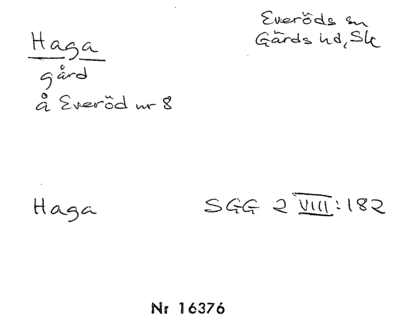 Haga
gård
å Everöd nr 8
Everöds sn
Gärds hd, Sk
Haga SGG 2 VIII:182
Nr 16376